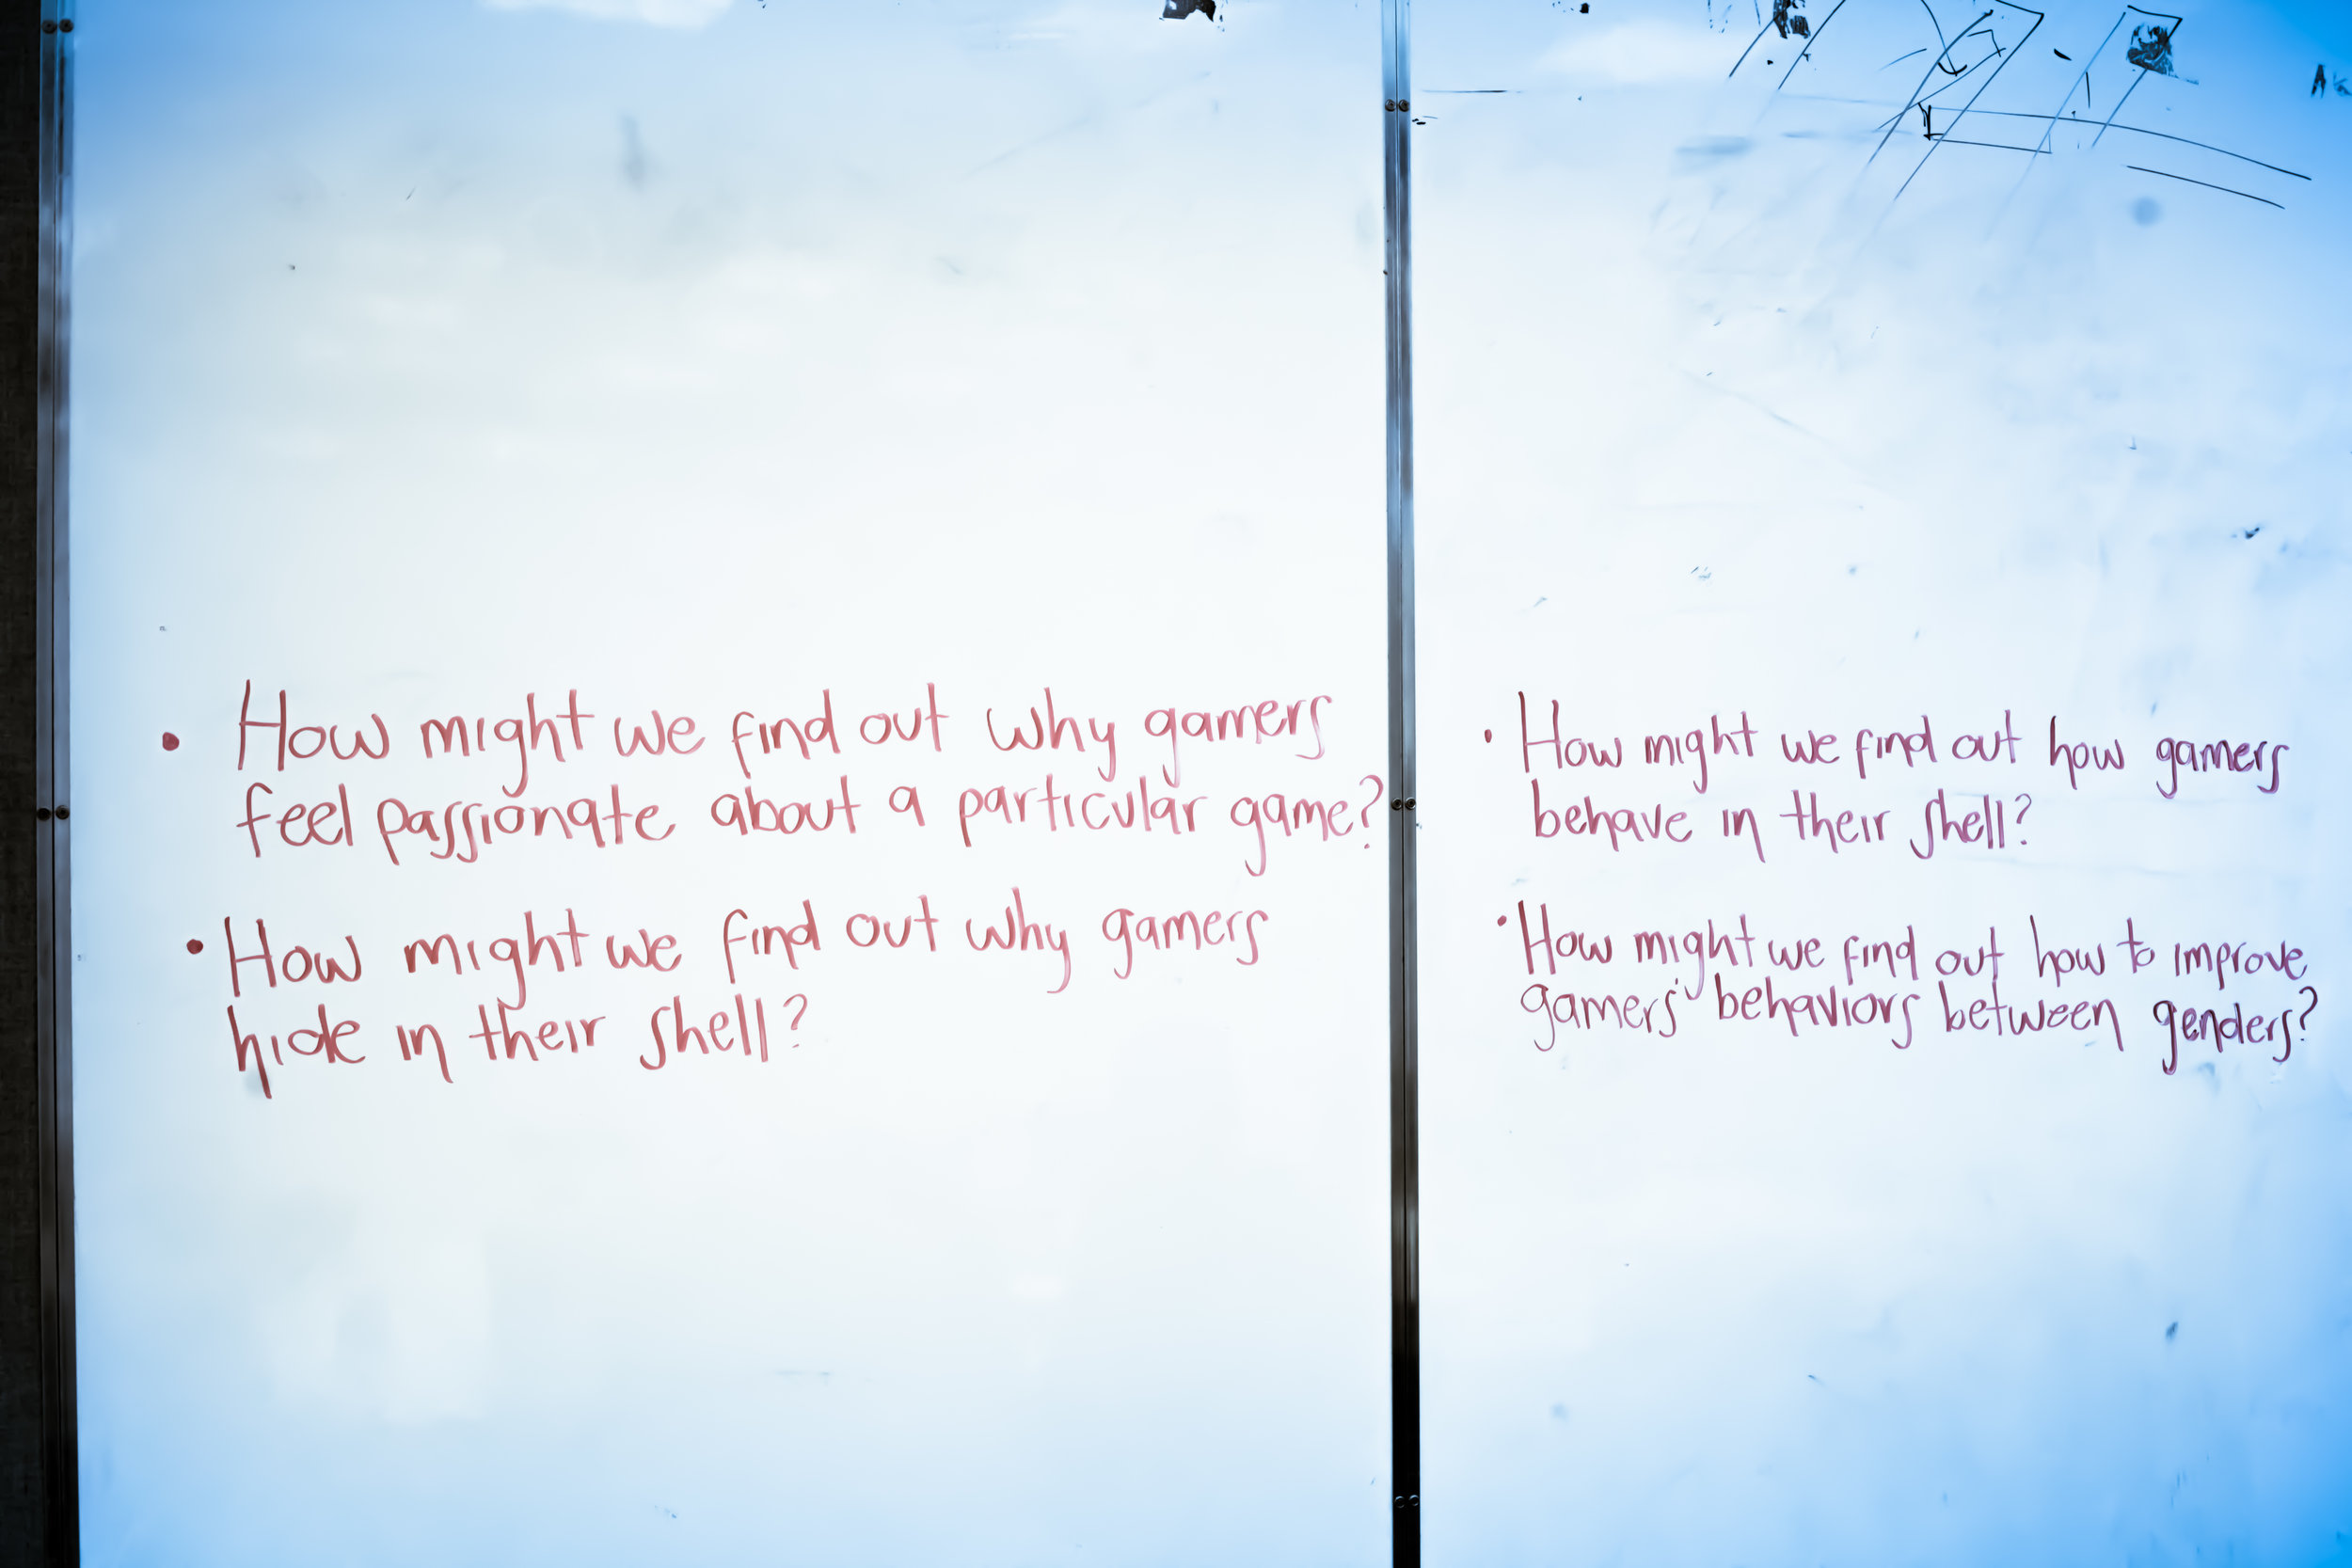 • How might we find out why gamers
feel passionate about a particular game?
• How might we find out why gamers
hide in their shell?
• How might we find out how gamers
behave in their shell?
• How might we find out how to improve
gamers' behaviors between genders?